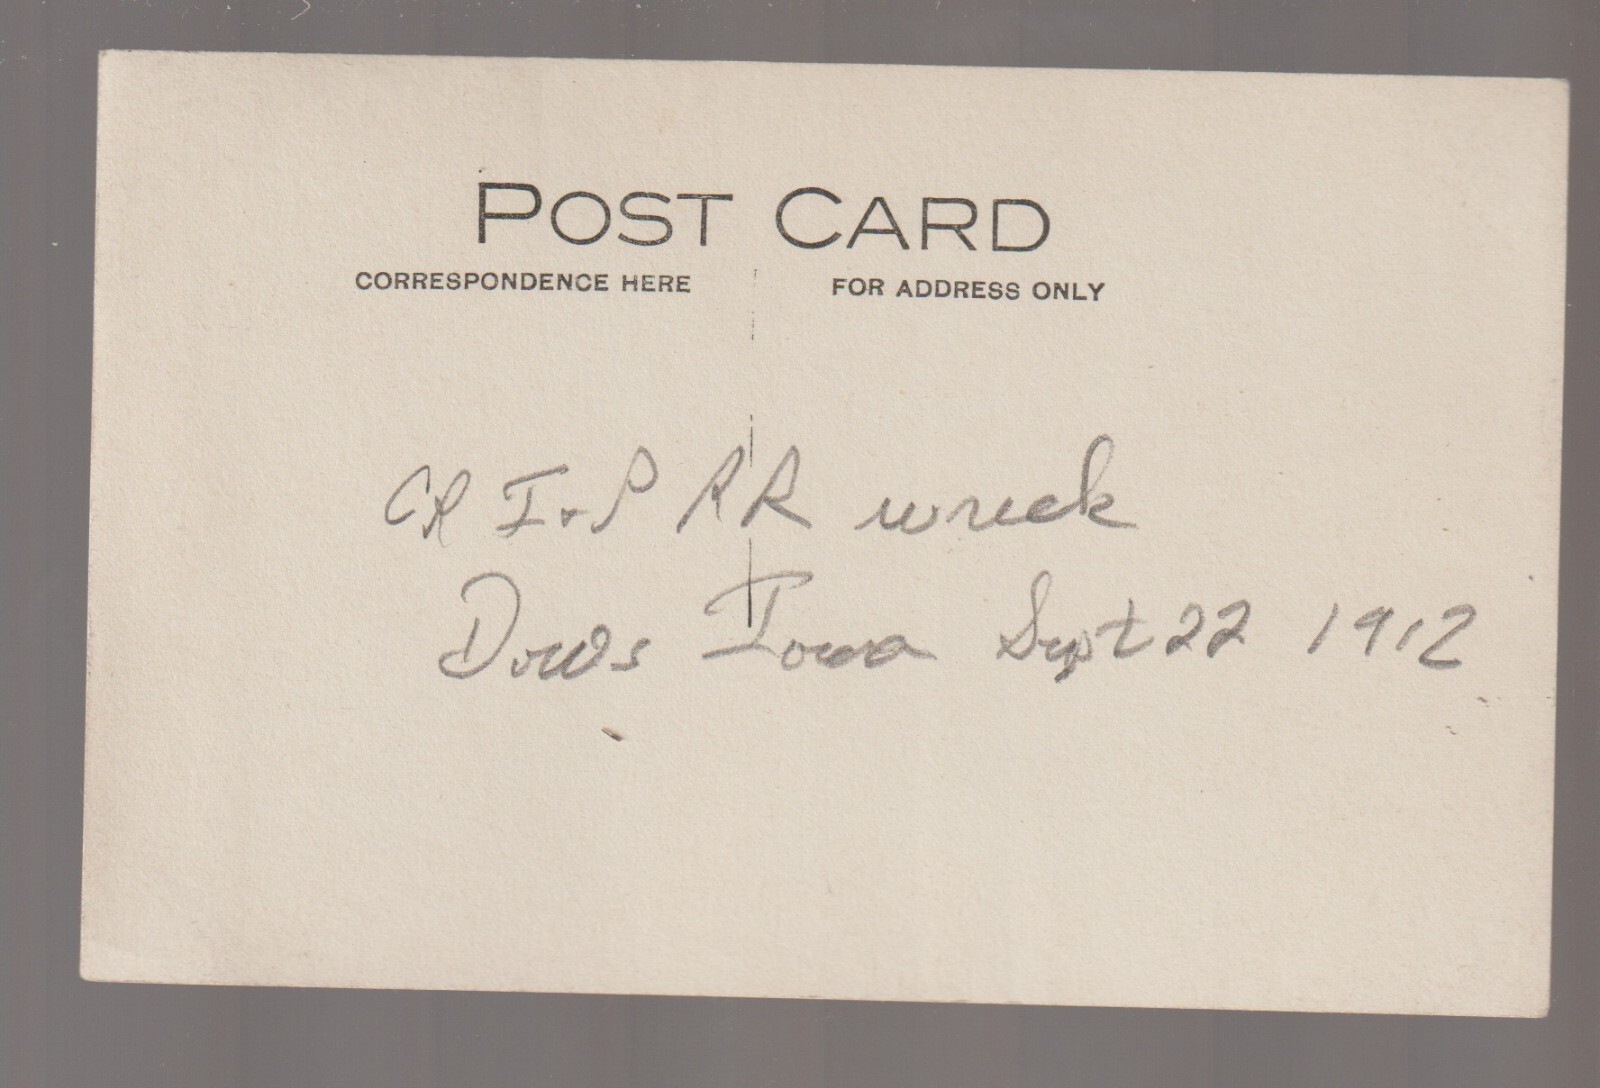 POST CARD
CORRESPONDENCE HERE FOR ADDRESS ONLY
CR I + P RR wreck
Dows Iowa Sept 22 1912